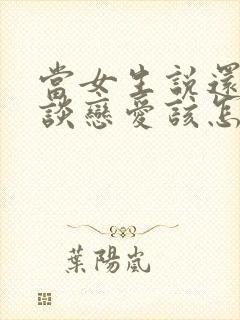 當女生說還
談戀愛該怎
葉陽嵐